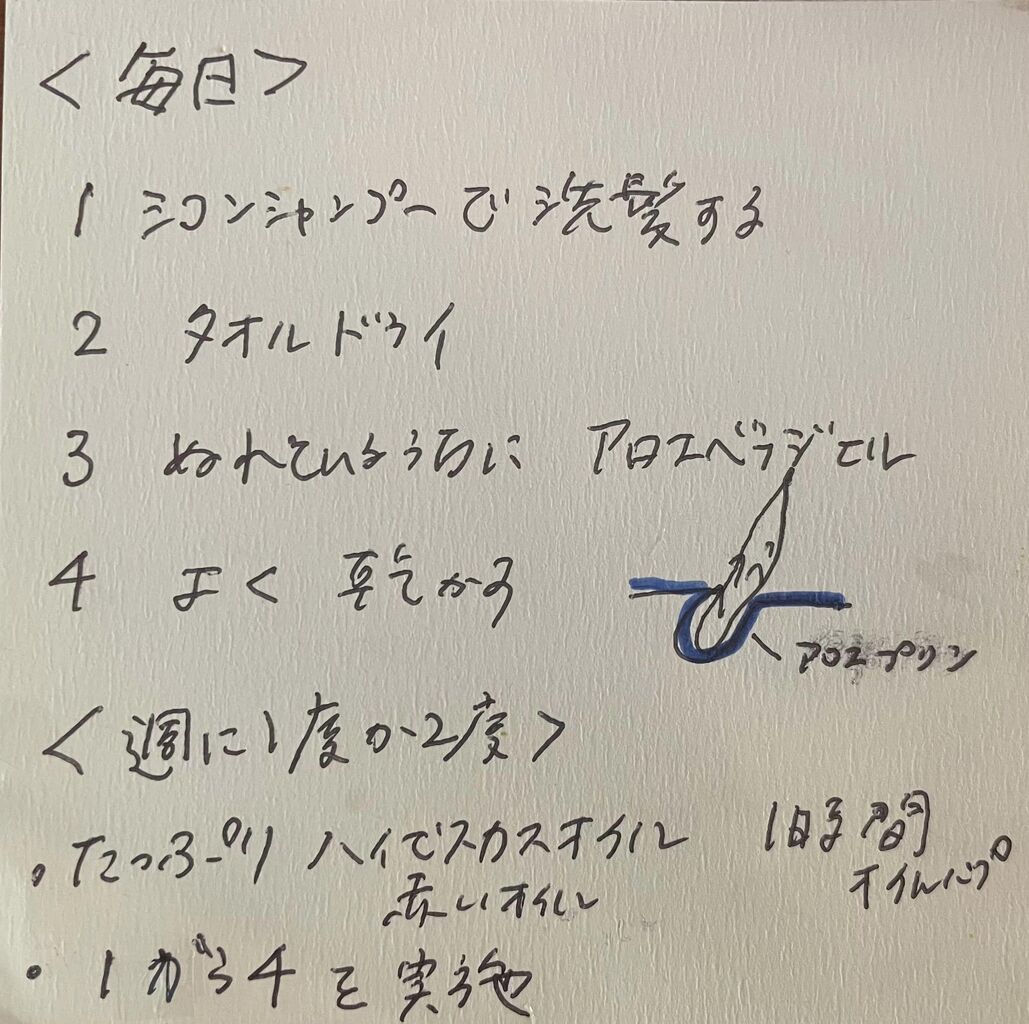 <毎日>
1 シコンシャンプーで洗髪する
2 タオルドライ
3 ぬれているうちに アロエベラジェル
4 よく乾かす
アロエプリン
<週に1度か2度>
・たっぷり ハイビスカスオイル 1時間
赤いオイル オイルパップ
・1から4を実施